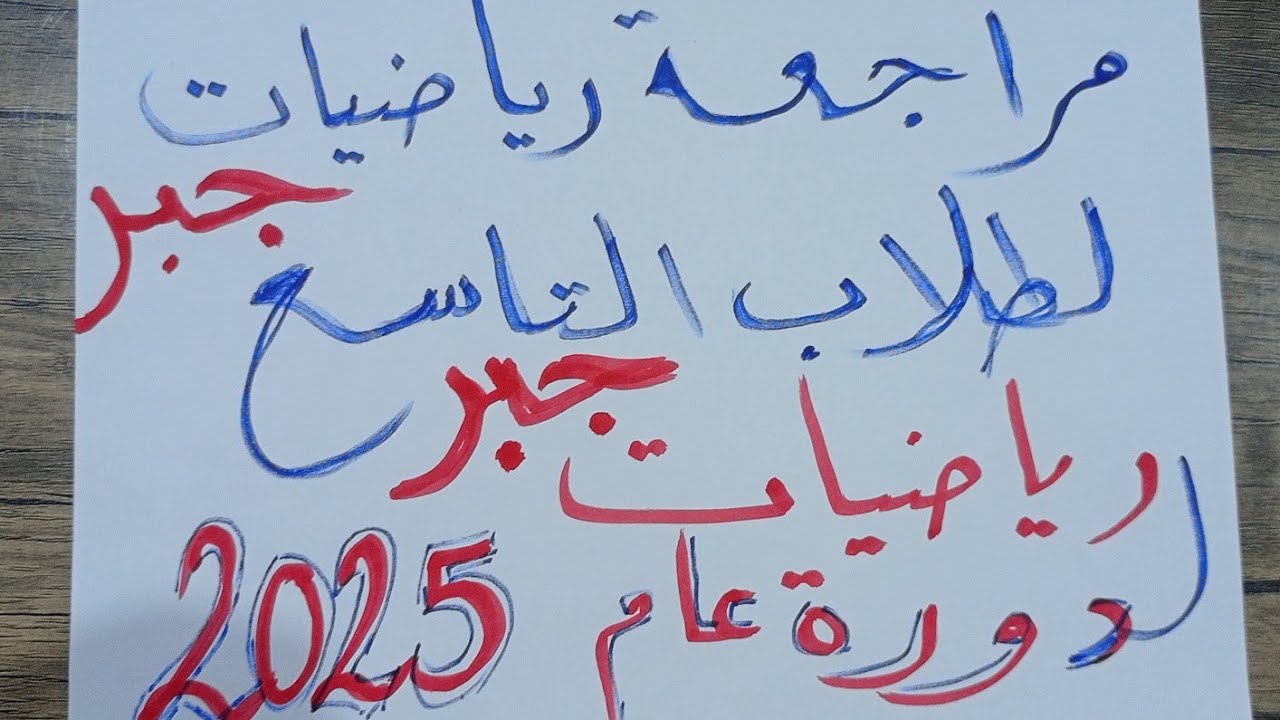 مراجعة رياضيات
جبر
لطلاب التاسع
جبر
رياضيات
لدورة عام 2025